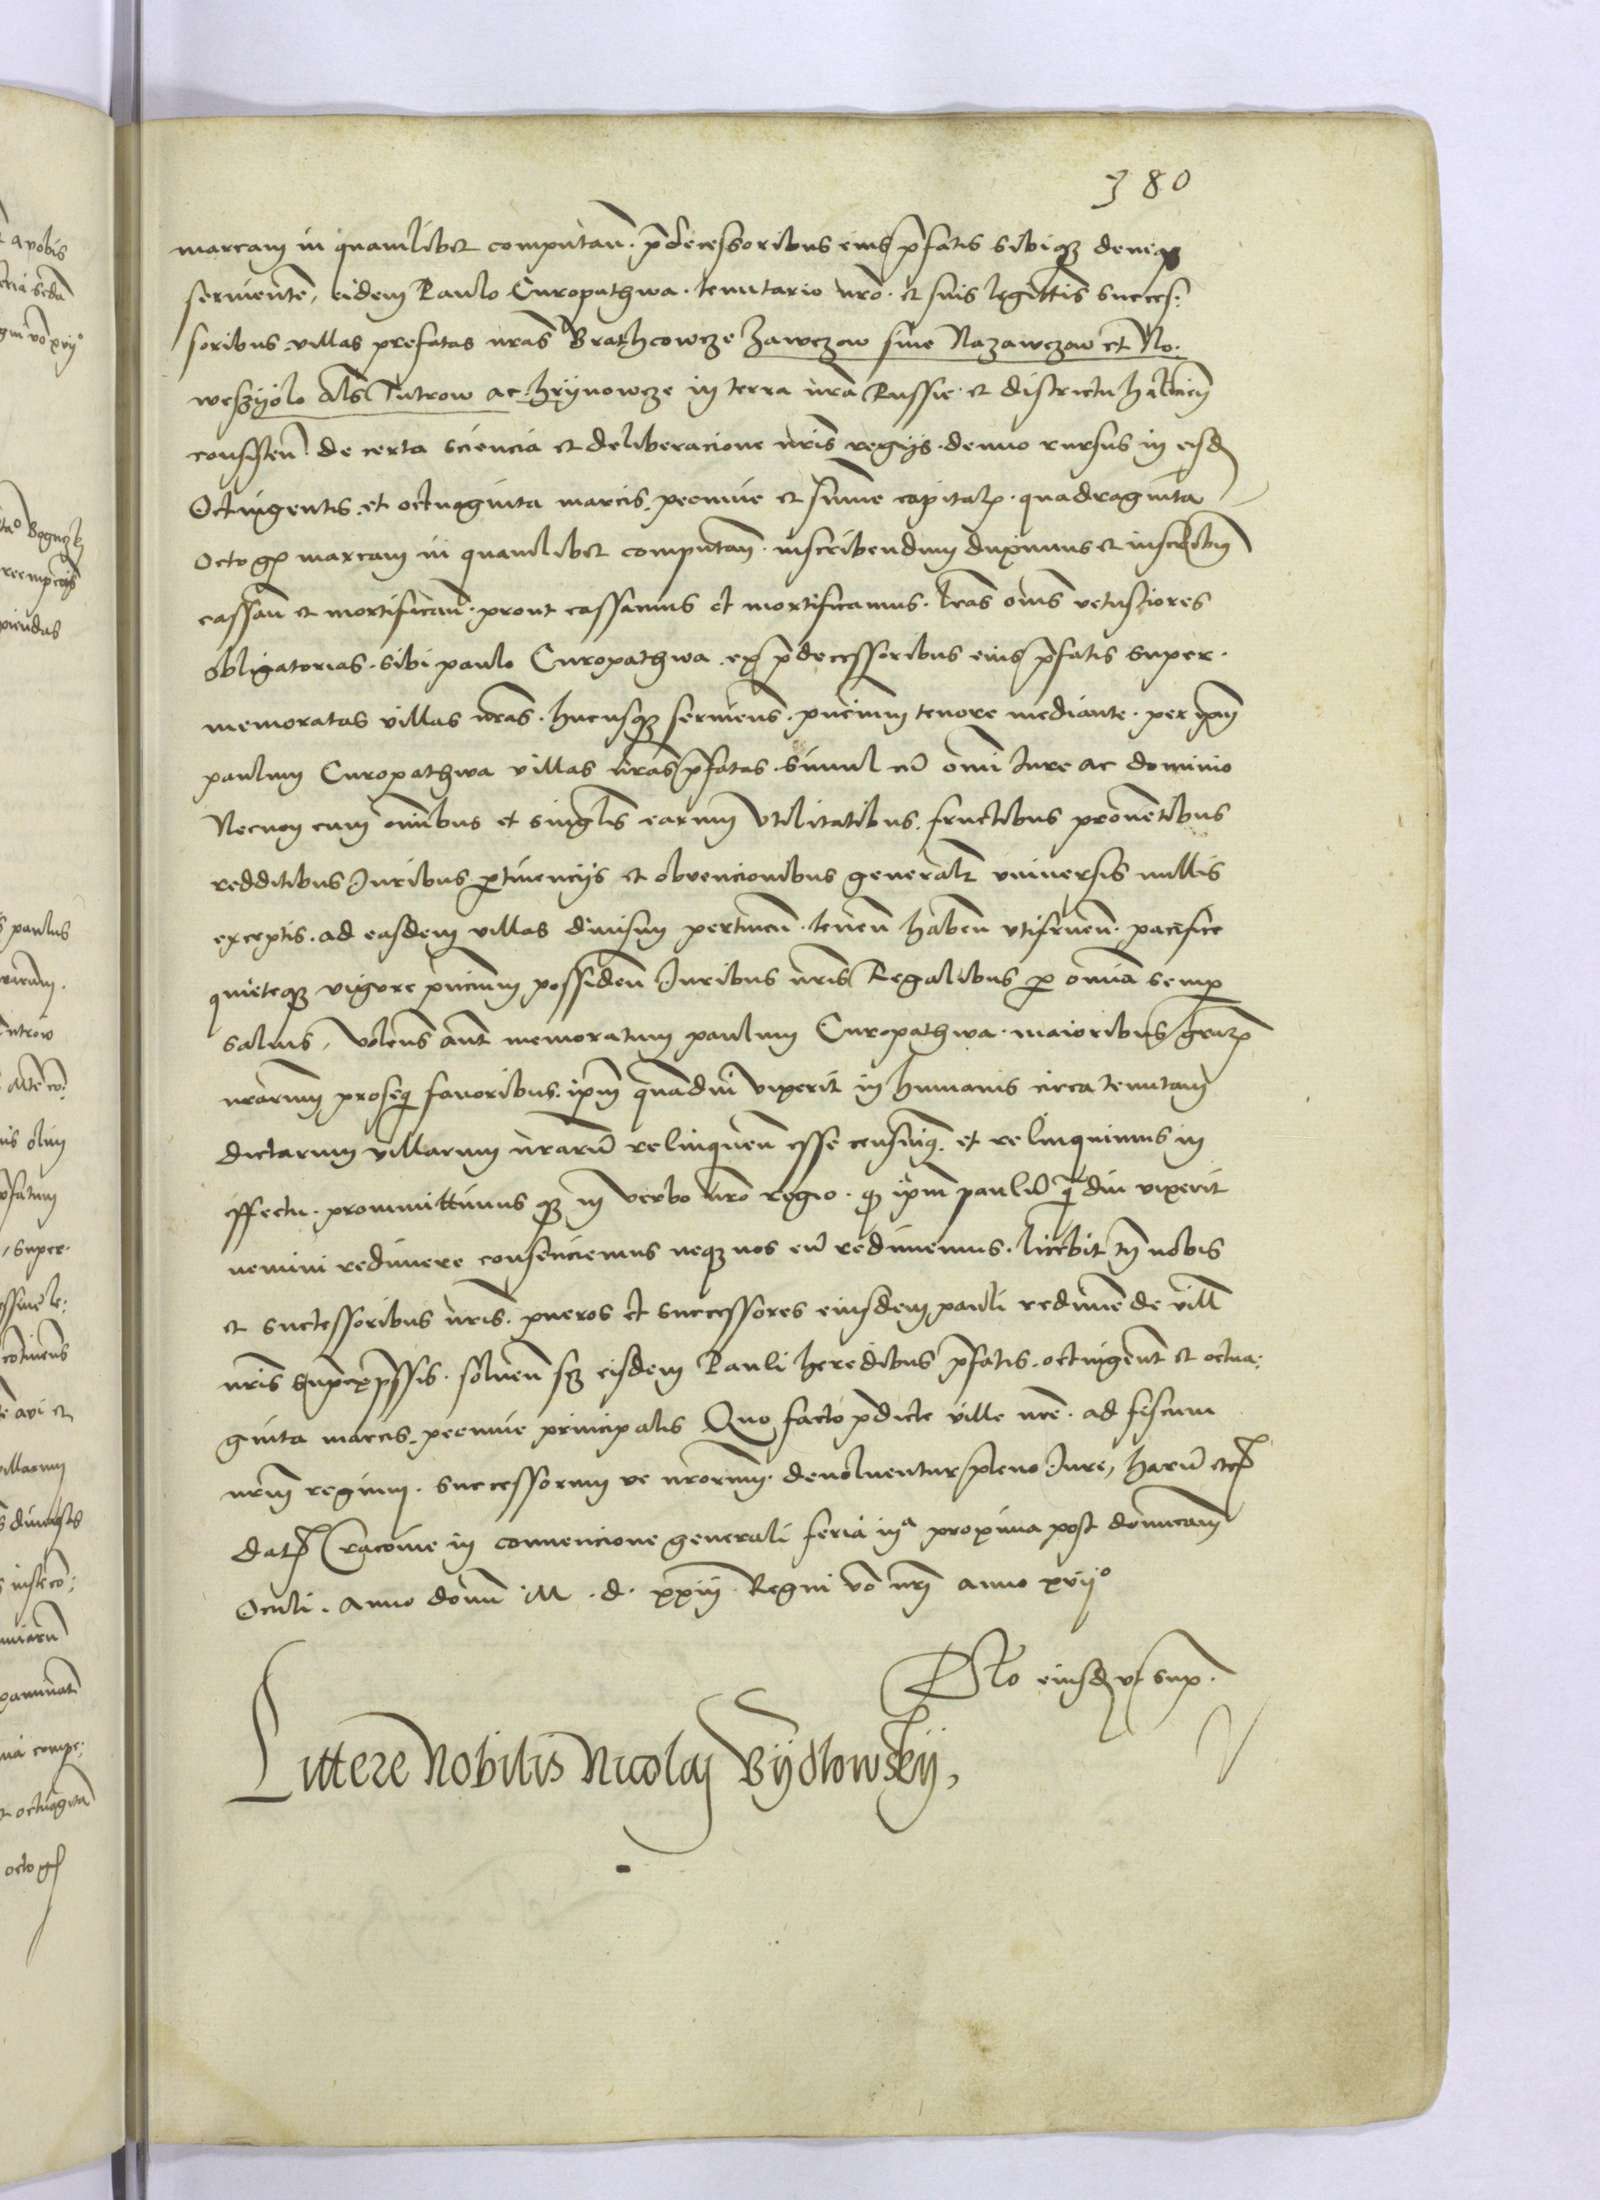 380
marcam in quamlibet computan̄. p̄decessoribus eius p̄fatis sibiqꝫ deniqꝫ
seruientē, eidem Paulo Curopathwa. tenutario nr̄o. et suis legittīs succes:
soribus villas prefatas nr̄as Brathcowcze Zawczow siue Nazawczow et No:
weszyolo al̄s Tutrow ac hrijnowcze in terra nr̄a Russie. et districtu halicień
consisteñ de certa sciencia et deliberacione nr̄is regijs. denuo rursus in eisd̄
Octingentis. et octuaginta marcis, pecunie et sūme capitaꝉ. quadraginta
Octo gꝛ marcam in quamlibet computan̄. inscribendum duximus et inscribim̄
cassan̄ et mortifican̄. prout cassamus et mortificamus. lr̄as om̄s vetustiores
obligatorias. sibi paulo Curopathwa. ex p̄decessoribus eius p̄fatis super.
memoratas villas nr̄as. hucusqꝫ seruieñs. pn̄cium tenore mediante. per ip̄m
paulum Curopathwa villas nr̄as p̄fatas. simul cū om̄i Iure ac dominio
Necnon cum om̄ibus et singl̄is earum vtilitatibus. fructibus prouētibus
redditibus Iuribus ꝑtinencijs et obvencionibus generalr̄ vniuersis nullis
exceptis. ad easdem villas diuisim pertineñ. teneñ habeñ vtifrueñ. pacifice
quieteqꝫ vigore pn̄cium possideñ Iuribus nr̄is Regalibus ꝑ om̄ia semꝑ
saluis, Volens aut̄ memoratum paulum Curopathwa. maioribus gr̄aꝝ
nr̄arum proseqi fauoribus. ip̄m quādiu vixerit in humanis circa tenutam
dictarum villarum nr̄arū relinqueñ esse censuimꝰ. et relinquimus in
effectu. promittimus qꝫ in verbo nr̄o regio. qꝫ ip̄m paulū q̄ diu vixerit
nemini redimere consenciemus neqꝫ nos eū redimemus. licebit tn̄ nobis
et successoribus nr̄is. pueros et successores eiusdem pauli redimē de vill̄
nr̄is sup̄exp̄ssis. solueñ sꝫ eisdem Pauli heredibus p̄fatis. octingent̄ et octua:
ginta marcis. pecunie principalis Quo facto p̄dicte ville nr̄e. ad fiscum
nr̄um regium. successorum ve nr̄orum. deuoluentur pleno Iure, harū etcꝫ
datꝫ Cracouie in conuencione generali feria iiia proxima post dominicam
Oculi. Anno domī M. d. xxiij. Regni vō nr̄i anno xvijo
Rlō eiusd̄ vt̄ sup̄.
Littere Nobilis Nicolai Bijdlowskij,